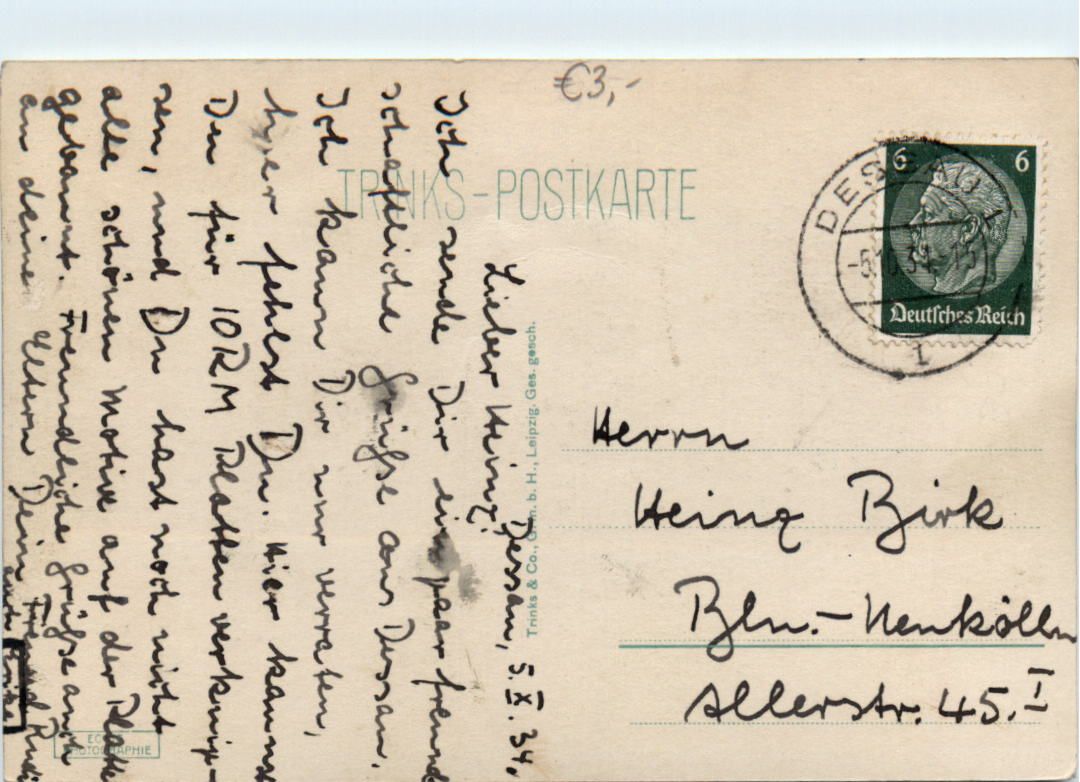 €3,-
TRINKS-POSTKARTE
6 6
Deutsches Reich
DESSAU
1
Dessau, 5.IX.34.
Lieber Heinz!
Ich sende Dir ein paar freund
schaftliche Grüsse aus Dessau.
Ich kann Dir nur verraten,
hier fehlst Du. Hier kannst
Du für 10RM Platten verknip-
sen, und Du hast noch nicht
alle schönen Motive auf der Platte
gebannt. Freundliche Grüße auch
an deine Eltern Dein Freund Rudi
Trinks & Co., G.m.b.H., Leipzig. Ges. gesch.
Herrn
Heinz Birk
Bln.-Neukölln
Allerstr. 45. I
ECHTE
PHOTOGRAPHIE